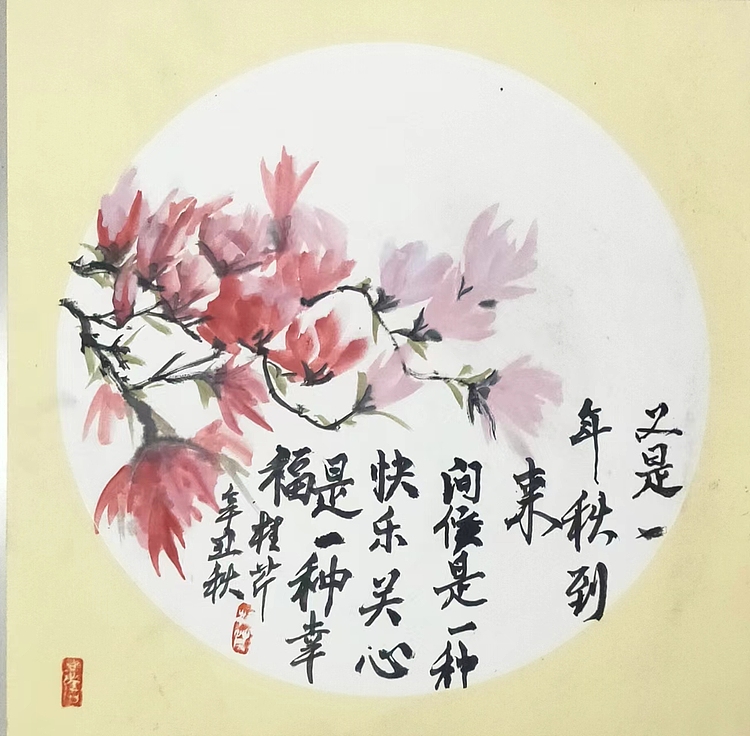 又是一
年秋到
来
问候是一种
快乐关心
是一种幸
福
桂芹
辛丑秋